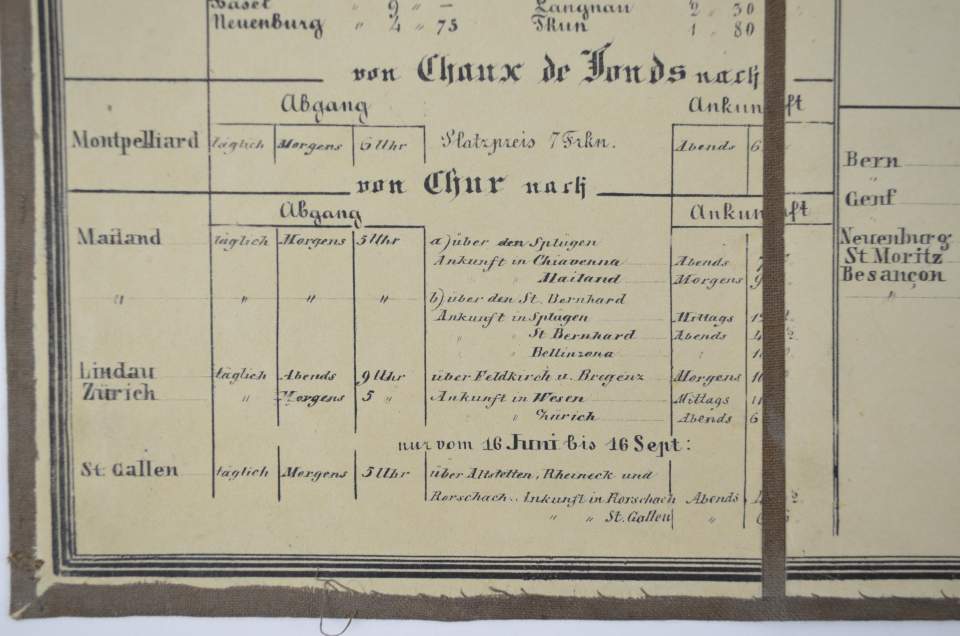 Basel " 9 " — Langnau 2 " 30
Neuenburg " 4 " 75 Thun 1 " 80
von Chaux de Fonds nach
Abgang Ankunft
Montpelliard täglich Morgens 6 Uhr Platzpreis 7 Frkn. Abends 6
von Chur nach
Abgang Ankunft
Mailand täglich Morgens 5 Uhr a) über den Splügen
Ankunft in Chiavenna Abends
" Mailand Morgens 9
" " " " b) über den St. Bernhard
Ankunft in Splügen Mittags
" St Bernhard Abends
" Bellinzona "
Lindau täglich Abends 9 Uhr über Feldkirch u. Bregenz Morgens
Zürich " Morgens 5 " Ankunft in Wesen Mittags
" Zürich Abends 6
nur vom 16 Juni bis 16 Sept:
St. Gallen täglich Morgens 5 Uhr über Altstetten, Rheineck und
Rorschach.. Ankunft in Rorschach Abends
" " St. Gallen "
Bern
"
Genf
Neuenburg
St Moritz
Besançon
"